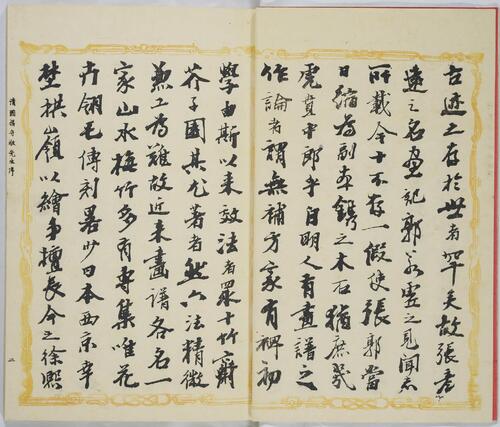 古迹之存於世者罕矣故張彥
遠之名畫記郭若虛之見聞志
所載今十不存一假使張郭當
日縮為副本鐫之木石猶庶幾
虎賁中郎乎自明人有畫譜之
作論者謂無補方家有裨初
學由斯以來效法者眾十竹齋
芥子園其尤著者然六法精微
兼工為難故近來畫譜各名一
家山水梅竹多有專集唯花
卉翎毛傳刻畧少日本西京幸
埜楳嶺以繪事擅長今之徐熙
清國楊守敬先生序